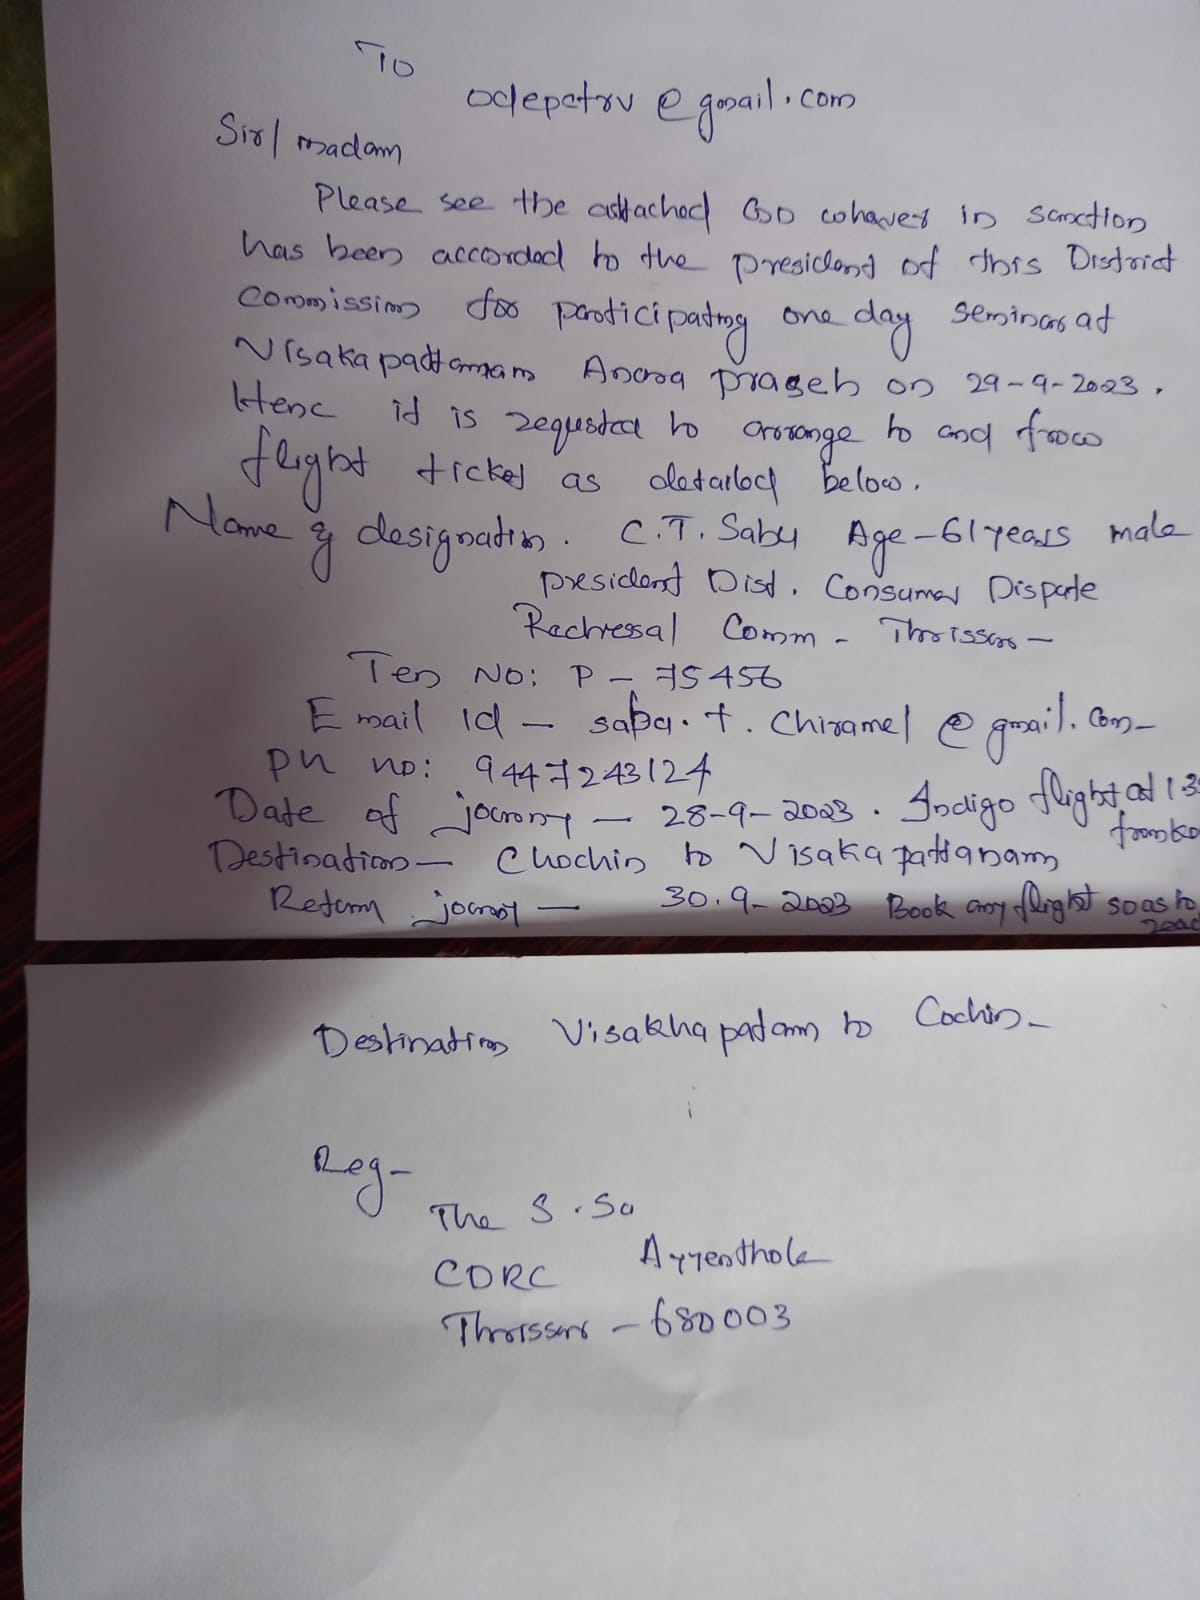 To
odepctrv@gmail.com
Sir/madam
Please see the attached GO in sanction
has been accorded to the president of this District
Commission for participating one day seminar at
Visakapattanam on 29-9-2023.
Henc it is requsted to arrange to and from
flight ticket as detailed below.
Name & designation. C.T. Sabu Age-61 years male
president Dist. Consumer Dispute
Redressal Comm - Thrissur -
No: P - 75456
Email id - t.chiramel@gmail.com-
Ph no: 9447243124
Date of - 28-9-2023. Indigo flight at 1.3
from
Destination - Chochin to Visakapattanam
Return - 30.9-2023 Book any flight so as to
Destination Visakhapatam to Cochin-
Reg-
The S.
CDRC Ayyenthole
Thrissur - 680003